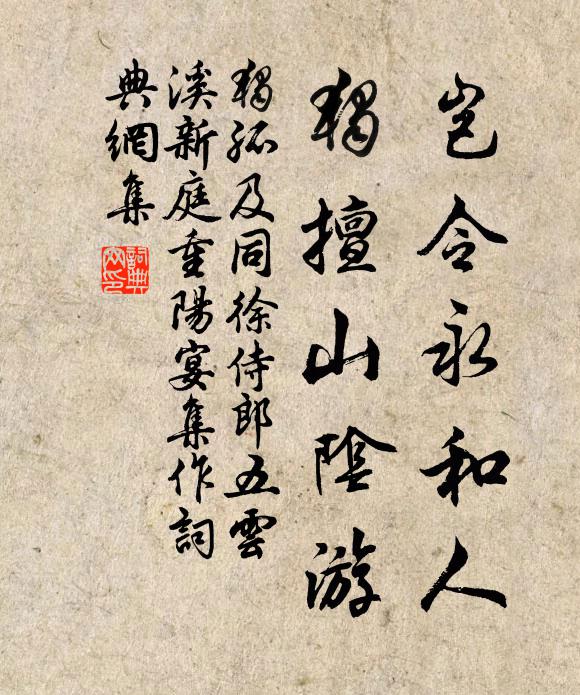 岂令永和人
獨擅山陰游
獨孤及同徐侍郎五雲
溪新庭重陽宴集作詞
典網集
詞典
网印